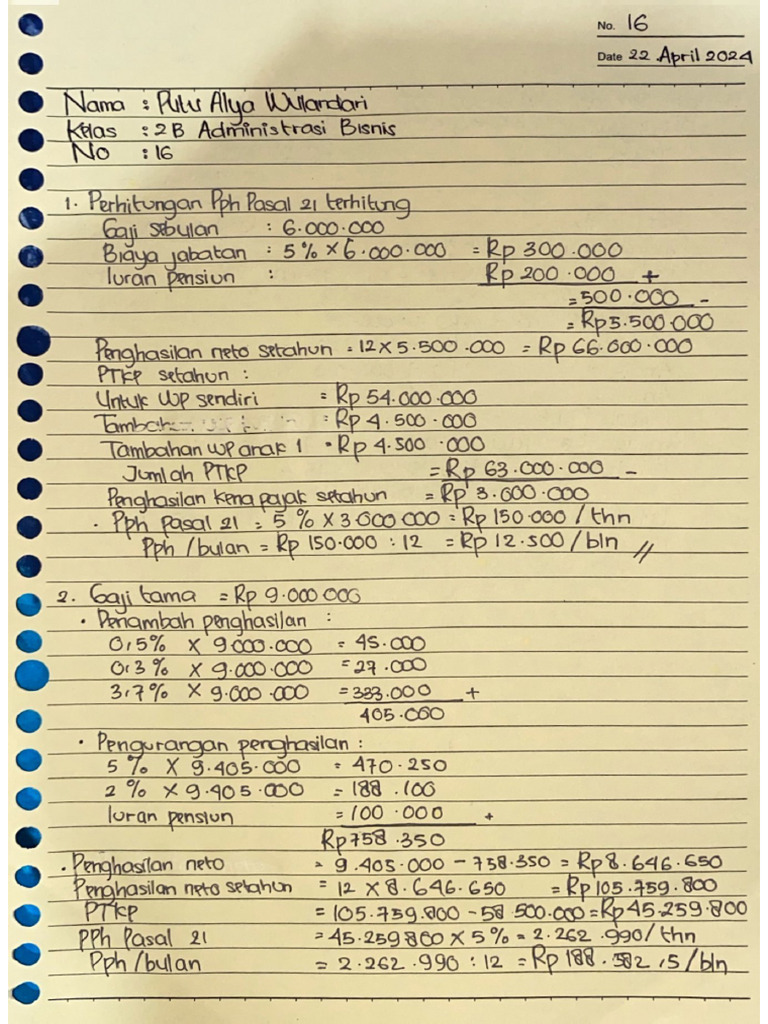 No. 16
Date 22 April 2024
Nama : Putu Alya Wulandari
Kelas : 2B Administrasi Bisnis
No : 16
1. Perhitungan Pph Pasal 21 terhitung
Gaji sebulan : 6.000.000
Biaya jabatan : 5% × 6.000.000 = Rp 300.000
Iuran pensiun : Rp 200.000 +
= 500.000 -
= Rp 5.500.000
Penghasilan neto setahun = 12 × 5.500.000 = Rp 66.000.000
PTKP setahun :
Untuk WP sendiri = Rp 54.000.000
= Rp 4.500.000
Tambahan WP anak 1 = Rp 4.500.000
Jumlah PTKP = Rp 63.000.000 -
Penghasilan kena pajak setahun = Rp 3.000.000
· Pph pasal 21 = 5% × 3.000.000 = Rp 150.000 / thn
Pph /bulan = Rp 150.000 : 12 = Rp 12.500 / bln //
2. Gaji tama = Rp 9.000.000
• Penambah penghasilan :
0,5% × 9.000.000 = 45.000
0,3% × 9.000.000 = 27.000
3,7% × 9.000.000 = 333.000 +
405.000
• Pengurangan penghasilan :
5% × 9.405.000 = 470.250
2% × 9.405.000 = 188.100
Iuran pensiun = 100.000 +
Rp 758.350
• Penghasilan neto = 9.405.000 - 758.350 = Rp 8.646.650
Penghasilan neto setahun = 12 × 8.646.650 = Rp 105.759.800
PTKP = 105.759.800 - 58.500.000 = Rp 45.259.800
PPh Pasal 21 = 45.259.800 × 5% = 2.262.990/thn
Pph /bulan = 2.262.990 : 12 = Rp 188.582,5/bln